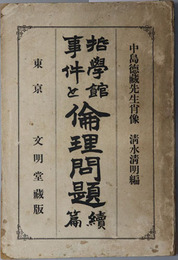 中島德藏先生肖像 清水清明編
哲學館
事件と
倫理問題
續篇
東京 文明堂藏版